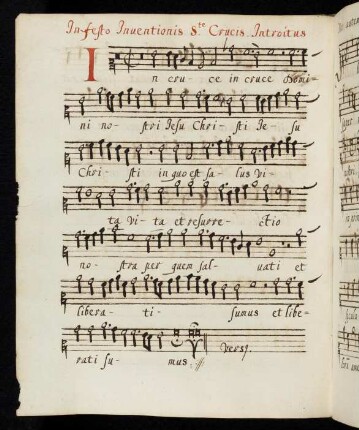 In festo Inventionis S.te Crucis. Introitus
In cru - ce in cruce Domi-
ni no- stri Jesu Chri- sti Je- su
Chri- sti in quo est sa- lus vi-
ta vi- ta et resurre- ctio
no- stra per quem sal- vati et
libera- ti- sumus et libe-
rati su- mus. Vers9.